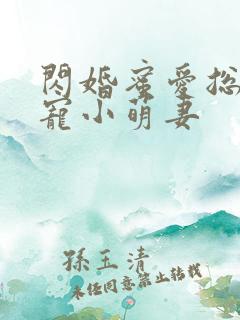 閃婚蜜愛总
寵小萌妻
孫玉清
未经同意禁止转载